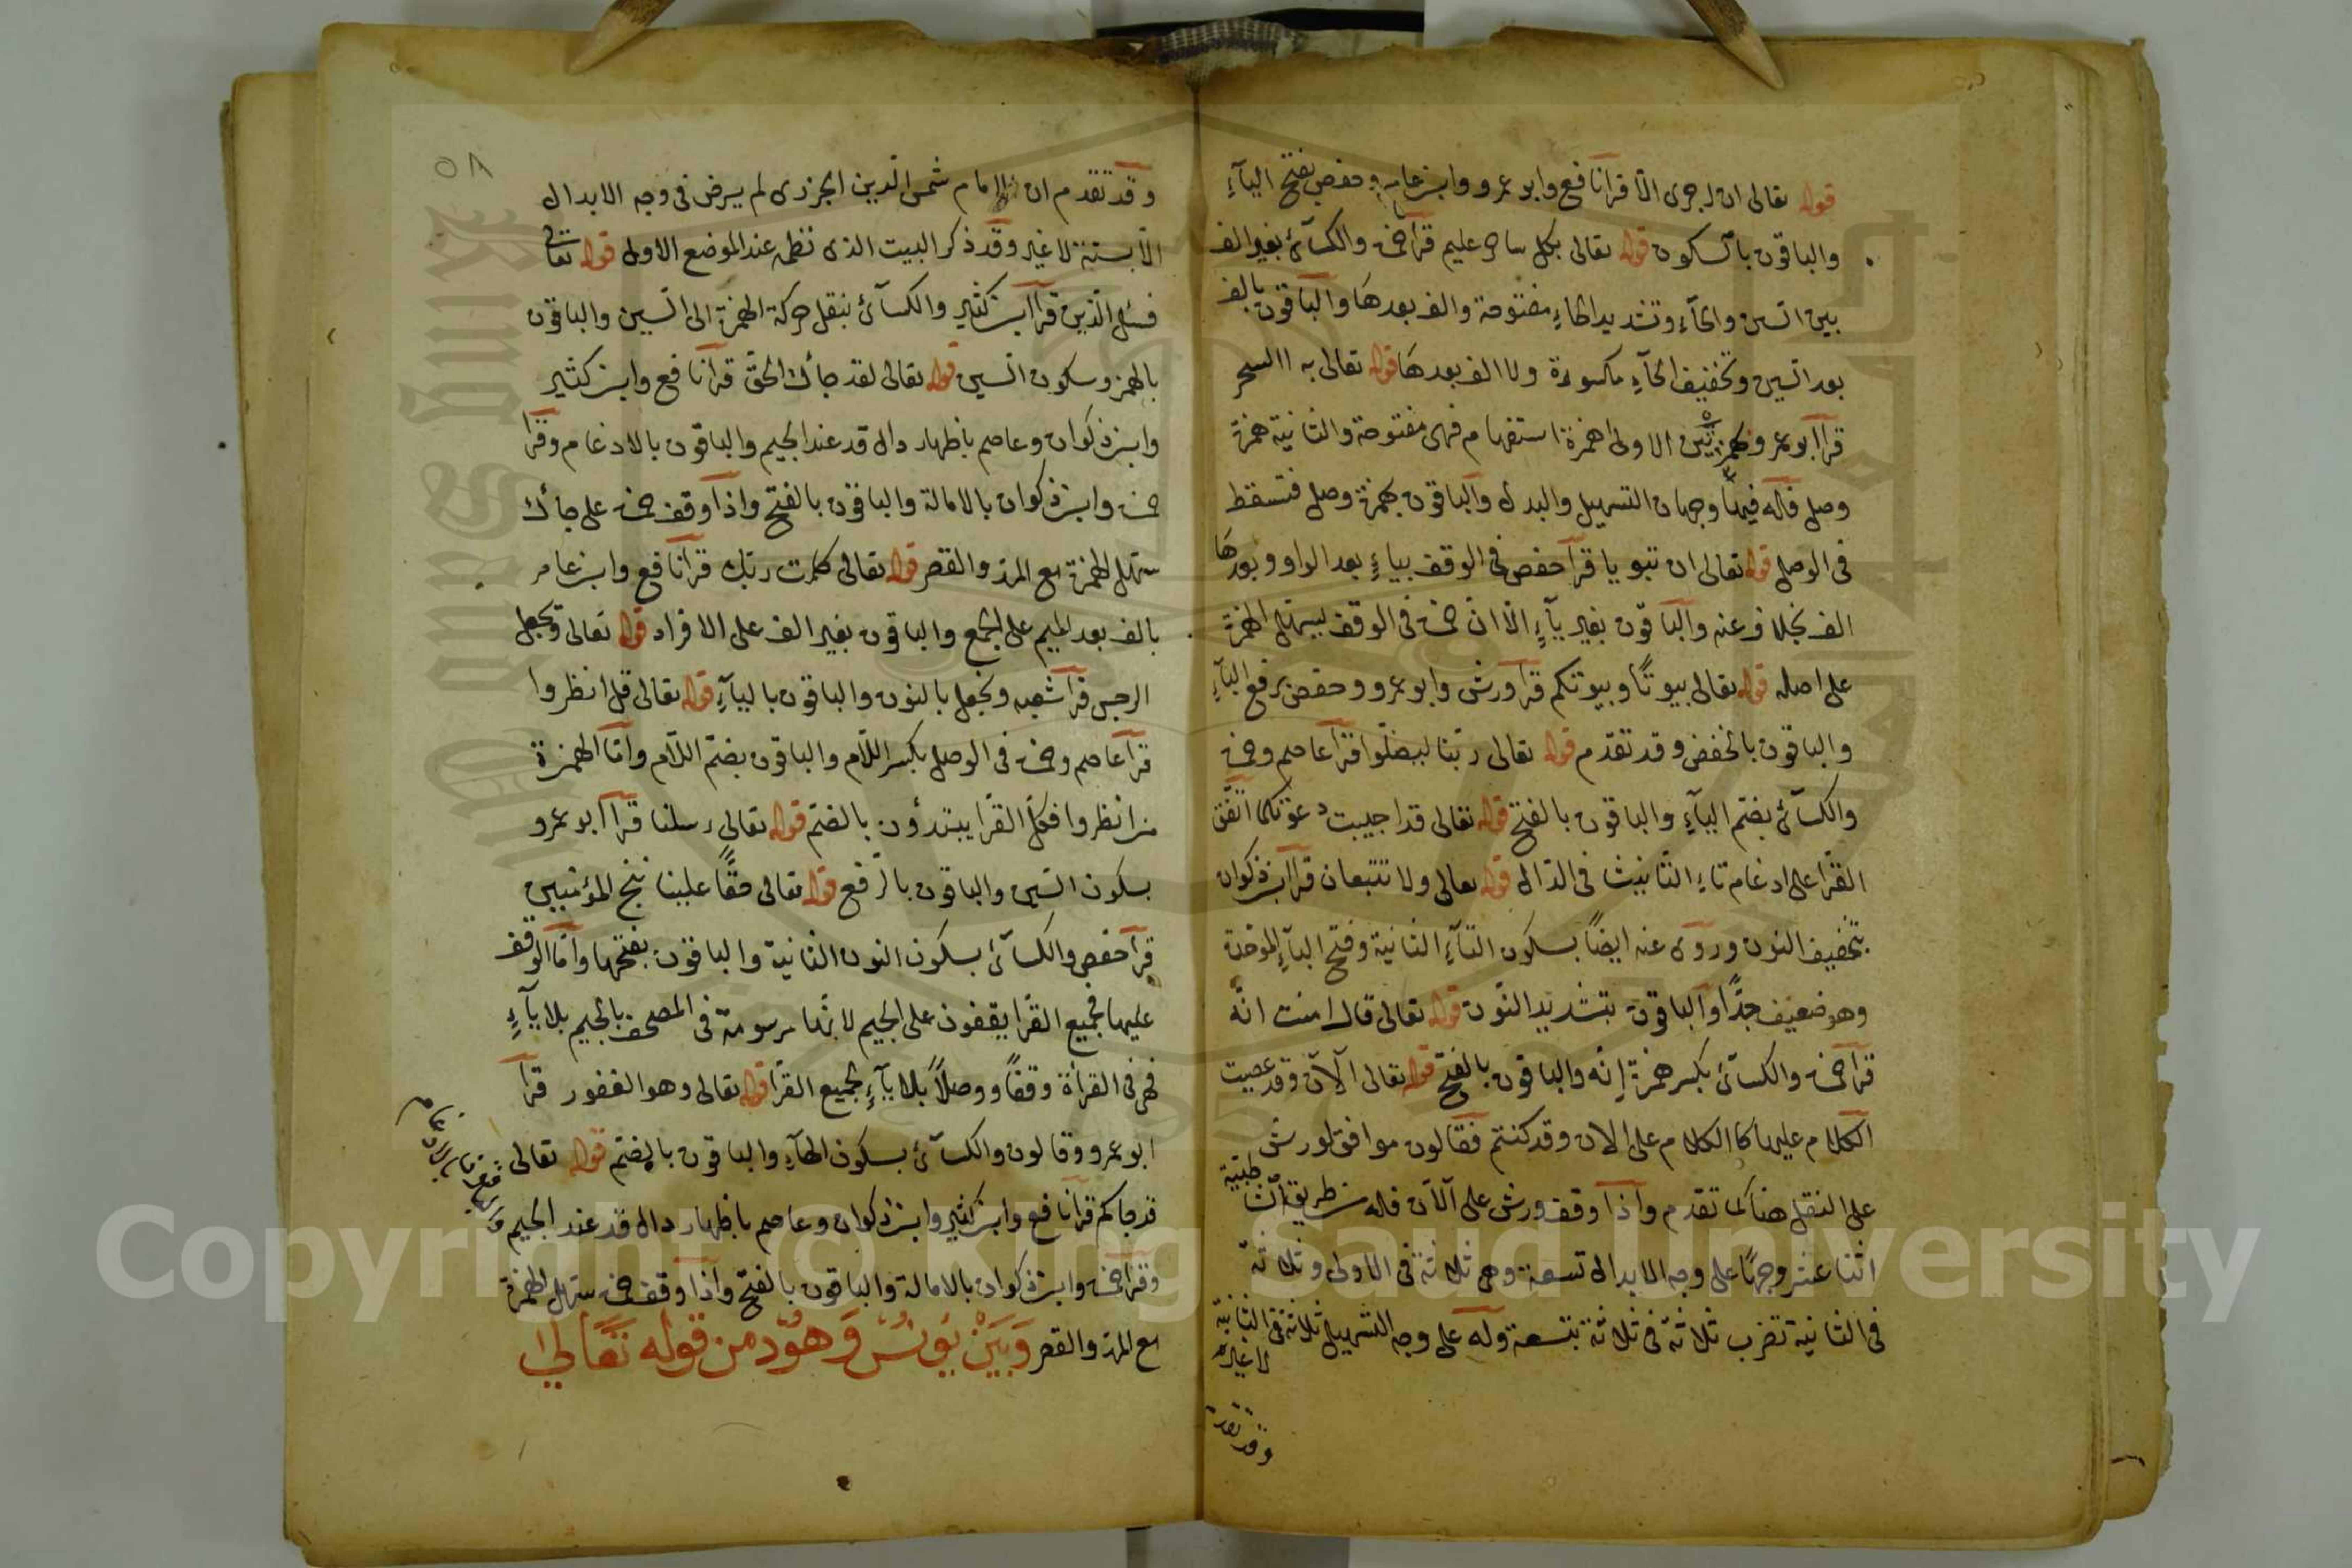 قوله تعالى ان اجرى الا قرا نافع وابو عمرو وابن عامر وحفص بفتح اليآء
والباقون بالسكون قوله تعالى بكل ساحر عليم قرا حمزه والكسآئ بغير الف
بين السين والحآء وتشديد الحاء مفتوحة والف بعدها والباقون بالف
بعد السين وتخفيف الحآء مكسورة ولا الف بعدها قوله تعالى به االسحر
قرا ابو عمرو بهمزتين الاولى همزة استفهام فهى مفتوحة والثانية همزة
وصل فله فيها وجهان التسهيل والبدل والباقون بهمزة وصل فتسقط
فى الوصل قوله تعالى ان تبويا قرا حفص فى الوقف بياء بعد الواو وبعدها
الف بخلاف عنه والباقون بغير يآء الا ان حمزه فى الوقف يسهل الهمزة
على اصله قوله تعالى بيوتًا وبيوتكم قرا ورش وابو عمرو وحفص برفع البآء
والباقون بالخفض وقد تقدم قوله تعالى ربنا ليضلوا قرا عاصم وحمزه
والكسآئ بضم اليآء والباقون بالفتح قوله تعالى قد اجيبت دعوتكما اتفق
القرا على ادغام تاء التانيث فى الدال قوله تعالى ولا تتبعان قرا ابن ذكوان
بتخفيف النون وروى عنه ايضًا بسكون التآء الثانية وفتح البآء الموحدة
وهو ضعيف جدًّا والباقون بتشديد النون قوله تعالى قال امنت انه
قرا حمزه والكسآئ بكسر همزة إنه والباقون بالفتح قوله تعالى آلآن وقد عصيت
الكلام عليها كالكلام على الان وقد كنتم فقالون موافق لورش
على النقل هنا كما تقدم واذا وقف ورش على آلآن فله من طريق الطيبة
اثنا عشر وجهًا على وجه الابدال تسعة وهى ثلاثة فى الاولى وثلاثة
فى الثانية تضرب ثلاثة فى ثلاثة بتسعة وله على وجه التسهيل ثلاثة فى الثانية
لا غير
وقد تقدم
٥٨
وقد تقدم ان الامام شمس الدين الجزرى لم يرض فى وجه الابدال
الا بستة لا غير وقد ذكر البيت الذى نظمه عند الموضع الاول قوله تعالى
فسئل الذين قرا ابن كثير والكسآئ بنقل حركة الهمزة الى السين والباقون
بالهمز وسكون السين قوله تعالى لقد جأك الحق قرا نافع وابن كثير
وابن ذكوان وعاصم باظهار دال قد عند الجيم والباقون بالادغام وقرا
حمزه وابن ذكوان بالامالة والباقون بالفتح واذا وقف حمزه على جأك
سهل الهمزة مع المد والقصر قوله تعالى كلمت ربك قرا نافع وابن عامر
بالف بعد الميم على الجمع والباقون بغير الف على الافراد قوله تعالى وتجعل
الرجس قرا شعبه ونجعل بالنون والباقون باليآء قوله تعالى قل انظروا
قرا عاصم وحمزه فى الوصل بكسر اللام والباقون بضم اللام واما الهمزة
من انظروا فكل القرا يبتدؤن بالضم قوله تعالى رسلنا قرا ابو عمرو
بسكون السين والباقون بالرفع قوله تعالى حقًّا علينا ننج المؤمنين
قرا حفص والكسآئ بسكون النون الثانية والباقون بفتحها واما الوقف
عليها فجميع القرا يقفون على الجيم لانها مرسومة فى المصحف بالجيم بلا يآء
فهى فى القرأة وقفًا ووصلاً بلا يآء لجميع القرا قوله تعالى وهو الغفور قرا
ابو عمرو وقالون والكسآئ بسكون الهآء والباقون بالضم قوله تعالى
قد جاكم قرا نافع وابن كثير وابن ذكوان وعاصم باظهار دال قد عند الجيم
والباقون بالادغام
وقرا حمزه وابن ذكوان بالامالة والباقون بالفتح واذا وقف حمزه سهل الهمزة
مع المد والقصر وَبَيْنَ يُونُسَ وَهُود من قوله تعَالى
Copyright © King Saud University